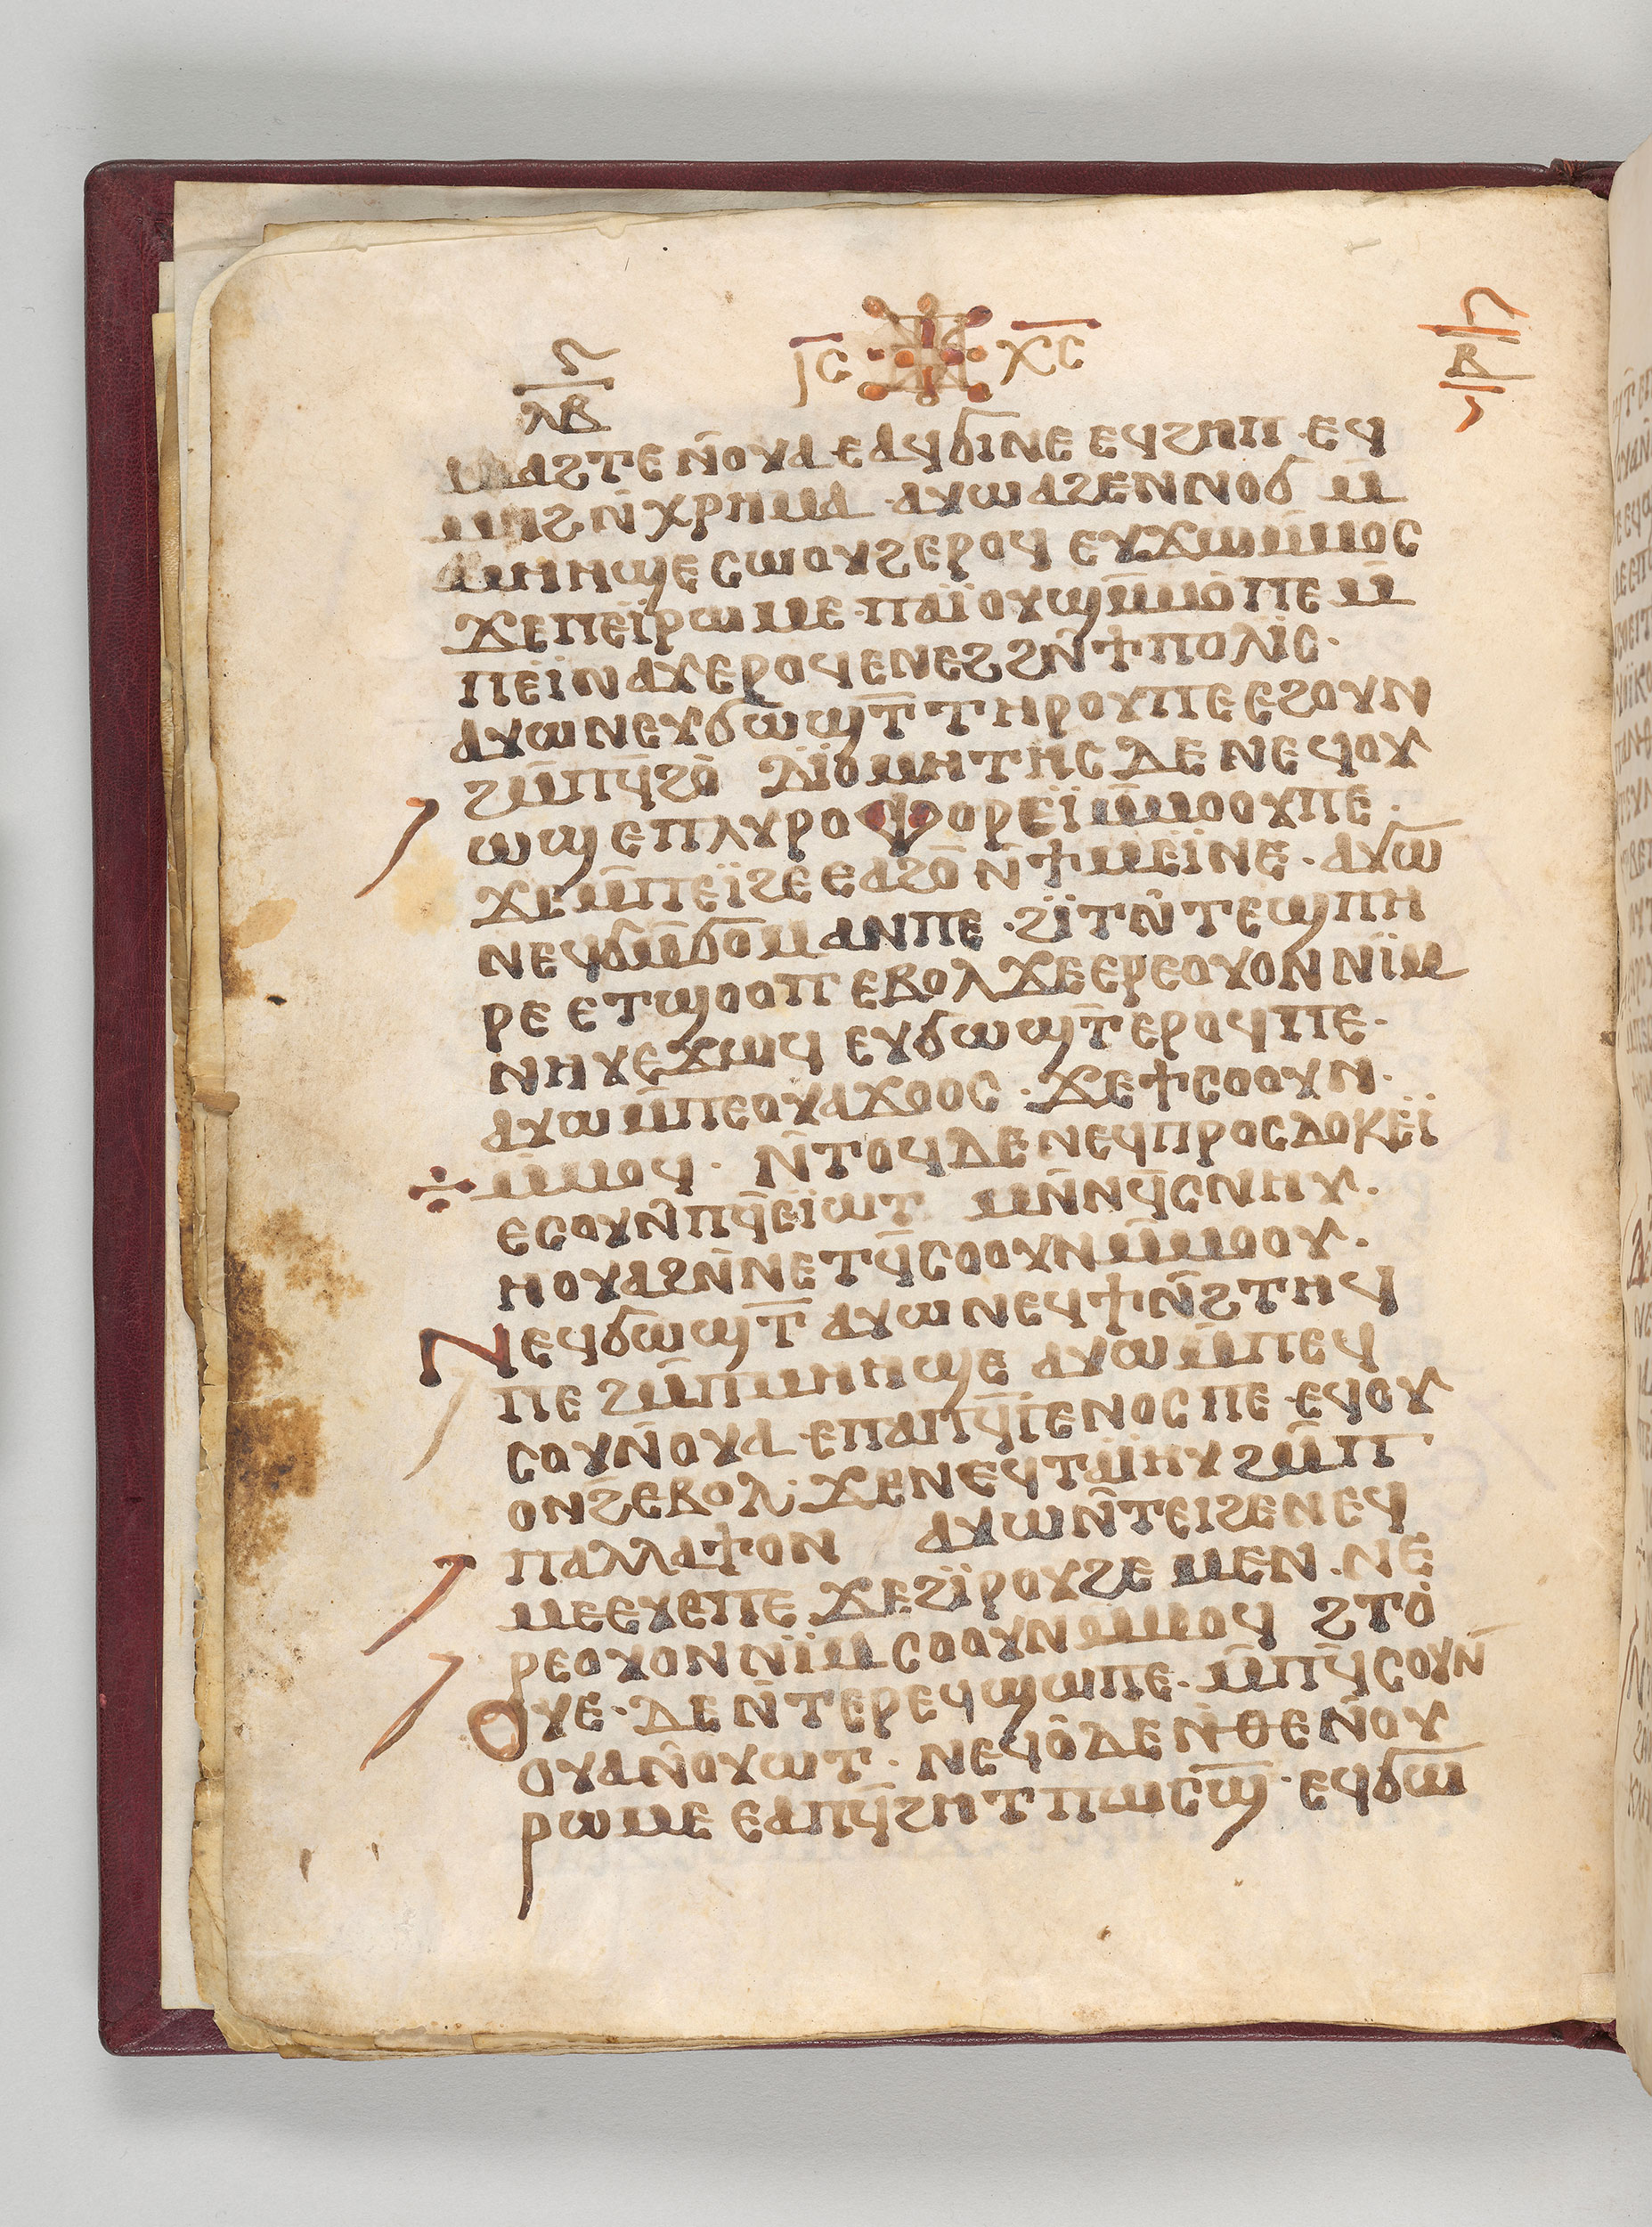 ⲓ̅ⲥ̅ ⲭ̅ⲥ̅
ⲗⲃ ⲃ
ⲙⲁϩⲧⲉ ⲛ̄ⲟⲩⲁ ⲉⲁϥϭⲓⲛⲉ ⲉϥϩⲏⲡ · ⲉϥ
ⲙⲏϩ ⲛ̄ⲭⲣⲏⲙⲁ · ⲁⲩⲱ ⲁϩⲉⲛⲛⲟϭ ⲙ̄
ⲙⲏⲏϣⲉ ⲥⲱⲟⲩϩ ⲉⲣⲟϥ ⲉⲩϫⲱⲙ̄ⲙⲟⲥ
ϫⲉⲡⲉⲓ̈ⲣⲱⲙⲉ · ⲡⲁⲓ̈ ⲟⲩϣⲙ̄ⲙⲟ ⲡⲉ ⲙ̄
ⲡⲉⲓ̈ⲛⲁⲩ ⲉⲣⲟϥ ⲉⲛⲉϩ ϩⲛ̄ϯⲡⲟⲗⲓⲥ ·
ⲁⲩⲱ ⲛⲉⲩϭⲱϣⲧ̄ ⲧⲏⲣⲟⲩ ⲡⲉ ⲉϩⲟⲩⲛ
ϩⲙ̄ⲡϥ̄ϩⲟ ⲇⲓ̈ⲟⲙⲏⲧⲏⲥ ⲇⲉ ⲛⲉϥⲟⲩ
ⲱϣ ⲉⲡⲗⲩⲣⲟⲫⲟⲣⲉⲓ̈ ⲙ̄ⲙⲟⲟⲩ ⲡⲉ ·
ϫⲉ ⲙ̄ⲡⲉⲓ̈ϩⲉ ⲉⲁϩⲟ ⲛ̄ϯⲙⲉⲓ̈ⲛⲉ · ⲁⲩⲱ
ⲛⲉϥϭⲙ̄ϭⲟⲙ ⲁⲛ ⲡⲉ · ϩⲓ̈ⲧⲛ̄ ⲧⲉϣⲡⲏ
ⲣⲉ ⲉⲧϣⲟⲟⲡ ⲉⲃⲟⲗ ϫⲉ ⲉⲣⲉⲟⲩⲟⲛ ⲛⲓ̈ⲙ
ⲛⲏⲩ ⲉϫⲱϥ ⲉⲩϭⲱϣⲧ̄ ⲉⲣⲟϥ ⲡⲉ ·
ⲁⲩⲱ ⲙ̄ⲡⲉⲟⲩⲁ ϫⲟⲟⲥ · ϫⲉ ϯⲥⲟⲟⲩⲛ ·
ⲙ̄ⲙⲟϥ · ⲛ̄ⲧⲟϥ ⲇⲉ ⲛⲉϥⲡⲣⲟⲥⲇⲟⲕⲉⲓ̈
ⲉⲥⲟⲩⲛ̄ ⲡϥ̄ⲉⲓ̈ⲱⲧ ⲙⲛ̄ⲛϥ̄ⲥⲛⲏⲩ ·
ⲏ ⲟⲩⲁ ϩⲛ̄ⲛⲉⲧϥ̄ⲥⲟⲟⲩⲛ ⲙ̄ⲙⲟⲟⲩ ·
ⲛⲉϥϭⲱϣⲧ̄ ⲁⲩⲱ ⲛⲉϥϯⲛ̄ϩⲧⲏϥ
ⲡⲉ ϩⲙ̄ⲡⲙⲏⲏϣⲉ ⲁⲩⲱ ⲙ̄ⲡⲉϥ
ⲥⲟⲩⲛ̄ ⲟⲩⲁ · ⲉⲡⲁⲡϥ̄ⲅⲉⲛⲟⲥ ⲡⲉ · ⲉϥⲟⲩ
ⲟⲛϩ ⲉⲃⲟⲗ · ϫⲉ ⲛⲉϥⲧⲁⲓ̈ⲏⲩ ϩⲙ̄ⲡ
ⲡⲁⲗⲗⲁϯⲟⲛ ⲁⲩⲱ ⲛ̄ⲧⲉⲓϩⲉ ⲛⲉϥ
ⲙⲉⲉⲩⲉ ⲡⲉ ϫⲉ ϩⲓ̈ⲣⲟⲩϩⲉ ⲙⲉⲛ · ⲛⲉ
ⲣⲉⲟⲩⲟⲛ ⲛⲓ̈ⲙ ⲥⲟⲟⲩⲛ ⲙ̄ⲙⲟϥ ϩⲧⲟ
ⲟⲩⲉ · ⲇⲉ ⲛ̄ⲧⲉⲣⲉϥϣⲱⲡⲉ · ⲙ̄ⲡϥ̄ⲥⲟⲩⲛ̄
ⲟⲩⲁ ⲛ̄ⲟⲩⲱⲧ · ⲛⲉϥⲟ ⲇⲉ ⲛ̄ⲑⲉ ⲛ̄ⲟⲩ
ⲣⲱⲙⲉ ⲉⲁⲡϥ̄ϩⲏⲧ ⲡⲱⲥϣ̄ · ⲉϥϭⲱ